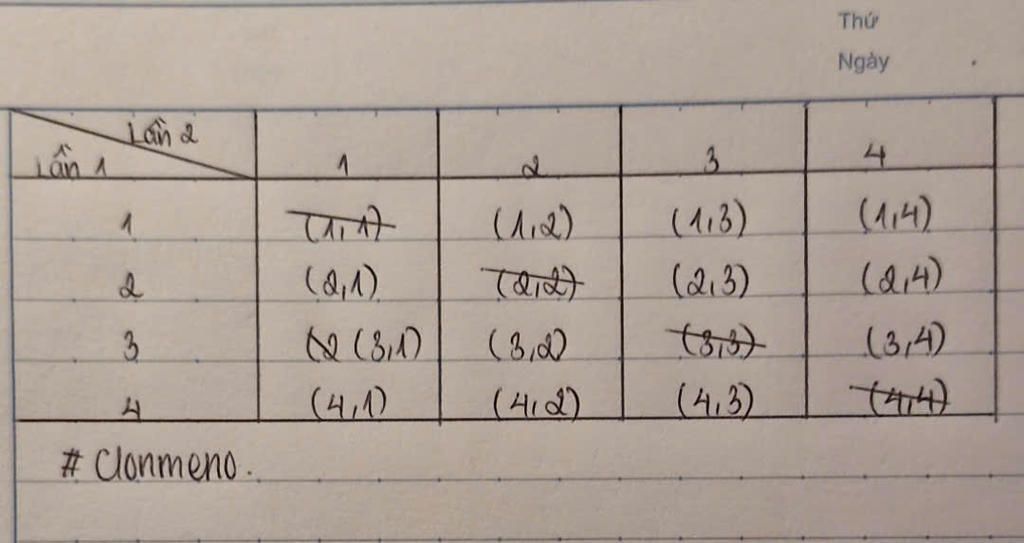 Thứ
Ngày
Lần 2
Lần 1 1 2 3 4
1 (1,1) (1,2) (1,3) (1,4)
2 (2,1) (2,2) (2,3) (2,4)
3 (2 (3,1) (3,2) (3,3) (3,4)
4 (4,1) (4,2) (4,3) (4,4)
# Clonmeno.